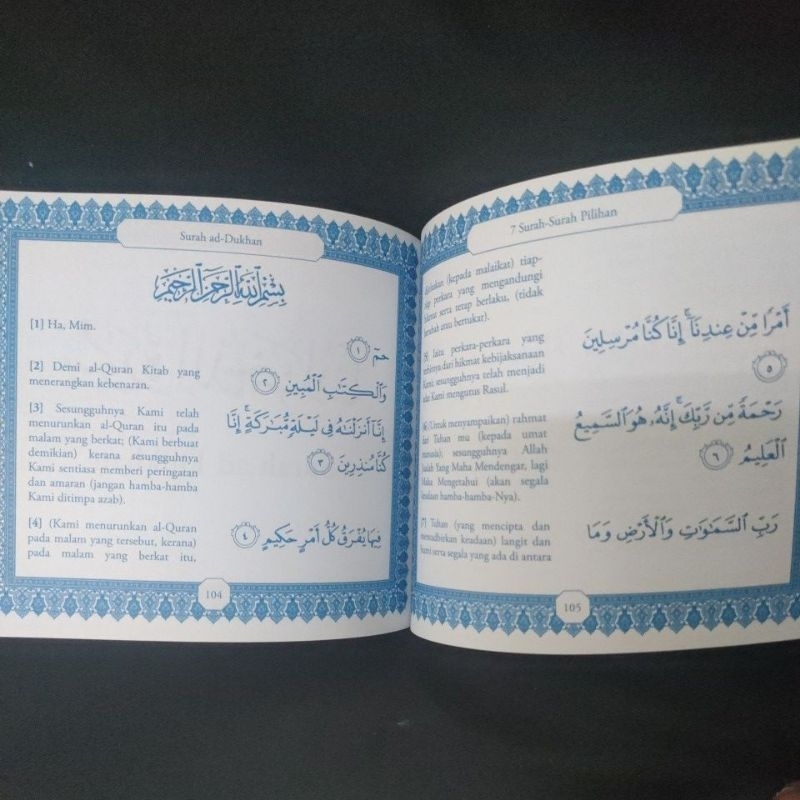 Surah ad-Dukhan
بِسْمِ اللَّهِ الرَّحْمَٰنِ الرَّحِيمِ
[1] Ha, Mim.
حمٓ ١
[2] Demi al-Quran Kitab yang
menerangkan kebenaran.
وَٱلْكِتَٰبِ ٱلْمُبِينِ ٢
[3] Sesungguhnya Kami telah
menurunkan al-Quran itu pada
malam yang berkat; (Kami berbuat
demikian) kerana sesungguhnya
Kami sentiasa memberi peringatan
dan amaran (jangan hamba-hamba
Kami ditimpa azab).
إِنَّآ أَنزَلْنَٰهُ فِى لَيْلَةٍ مُّبَٰرَكَةٍ ۚ إِنَّا
كُنَّا مُنذِرِينَ ٣
[4] (Kami menurunkan al-Quran
pada malam yang tersebut, kerana)
pada malam yang berkat itu,
فِيهَا يُفْرَقُ كُلُّ أَمْرٍ حَكِيمٍ ٤
104
7 Surah-Surah Pilihan
(kepada malaikat) tiap-
perkara yang mengandungi
serta tetap berlaku, (tidak
atau bertukar).
أَمْرًا مِّنْ عِندِنَآ ۚ إِنَّا كُنَّا مُرْسِلِينَ
٥
Iaitu perkara-perkara yang
dari hikmat kebijaksanaan
Kami; sesungguhnya telah menjadi
Kami mengutus Rasul.
رَحْمَةً مِّن رَّبِّكَ ۚ إِنَّهُۥ هُوَ ٱلسَّمِيعُ
ٱلْعَلِيمُ ٦
(Untuk menyampaikan) rahmat
dari Tuhan mu (kepada umat
manusia); sesungguhnya Allah
Yang Maha Mendengar, lagi
Maha Mengetahui (akan segala
keadaan hamba-hamba-Nya).
[7] Tuhan (yang mencipta dan
mentadbirkan keadaan) langit dan
bumi serta segala yang ada di antara
رَبِّ ٱلسَّمَٰوَٰتِ وَٱلْأَرْضِ وَمَا
105